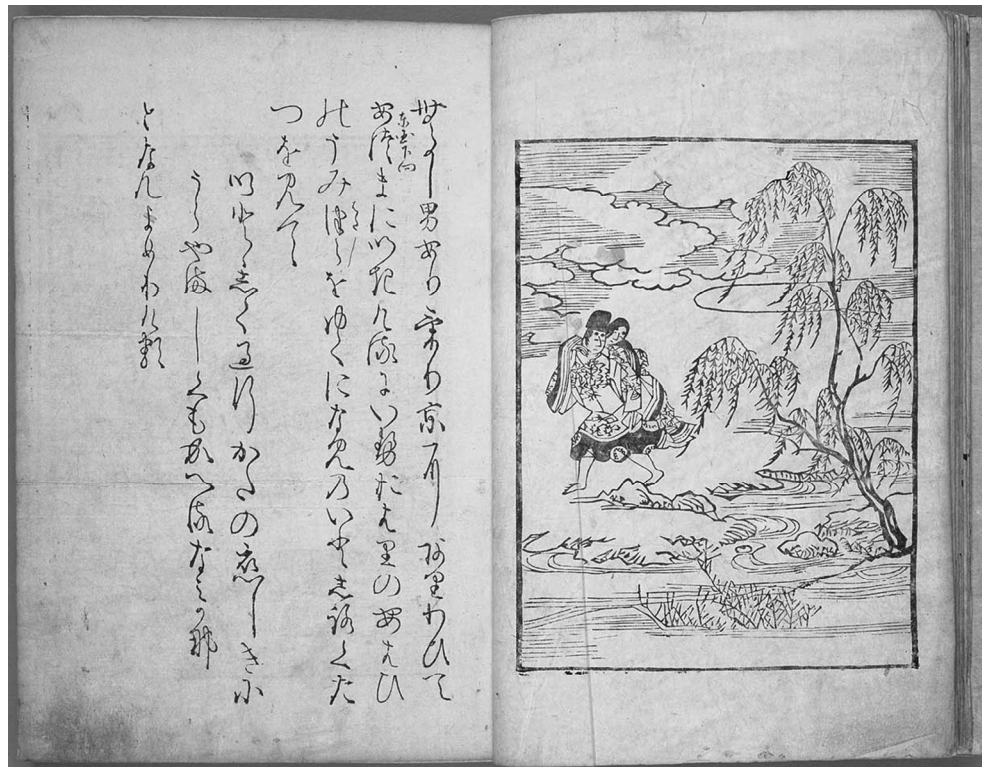 むかし男ありけり京にありわひて
東国下向
あつまにいきけるにいせおはりのあはひ
のうみつらをゆくになみのいとしろくた
つを見て
いとゝしく過行かたの恋しきに
うらやましくもかへるなみかな
となんよめりける